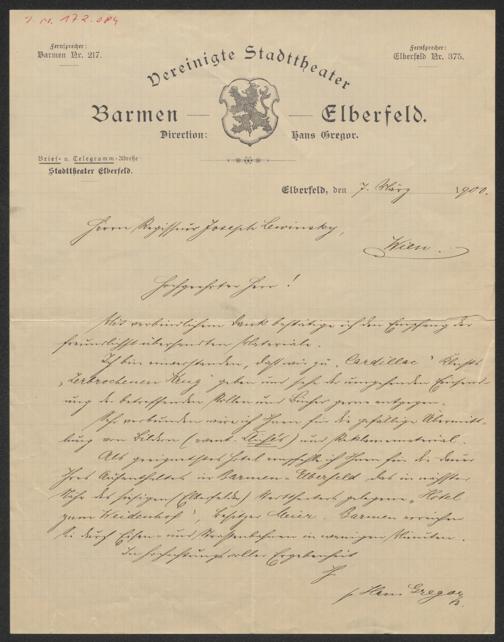 I. N. 172.084
Fernsprecher:
Barmen Nr. 217.
Fernsprecher:
Elberfeld Nr. 375.
Vereinigte Stadttheater
Barmen — — Elberfeld.
Direction: Hans Gregor.
Brief- u. Telegramm-Adresse
Stadttheater Elberfeld.
Elberfeld, den 7. März 1900.
Herrn Regisseur Joseph Lewinsky,
Wien.
Hochgeehrter Herr!
Mit verbindlichem Dank bestätige ich den Empfang der
freundlichst übersandten Materiale.
Ich bin einverstanden, dass wir zu „Cardillac“ Kleists
„Zerbrochenen Krug“ geben und sehe der umgehenden Einsend-
ung der betreffenden Rollen und Bücher gerne entgegen.
Sehr verbunden wäre ich Ihnen für die gefällige Übermitt-
lung von Bildern (event. Clichés) und Reklamematerial.
Als geeignetstes Hotel empfehle ich Ihnen für die Dauer
Ihres Aufenthaltes in Barmen-Elberfeld das in nächster
Nähe des hiesigen (Elberfelder) Stadttheaters gelegene „Hotel
zum Weidenhof“, Besitzer Meier. Barmen erreichen
Sie durch Eisen- und Strassenbahn in wenigen Minuten.
In hochachtungsvoller Ergebenheit
Hans Gregor